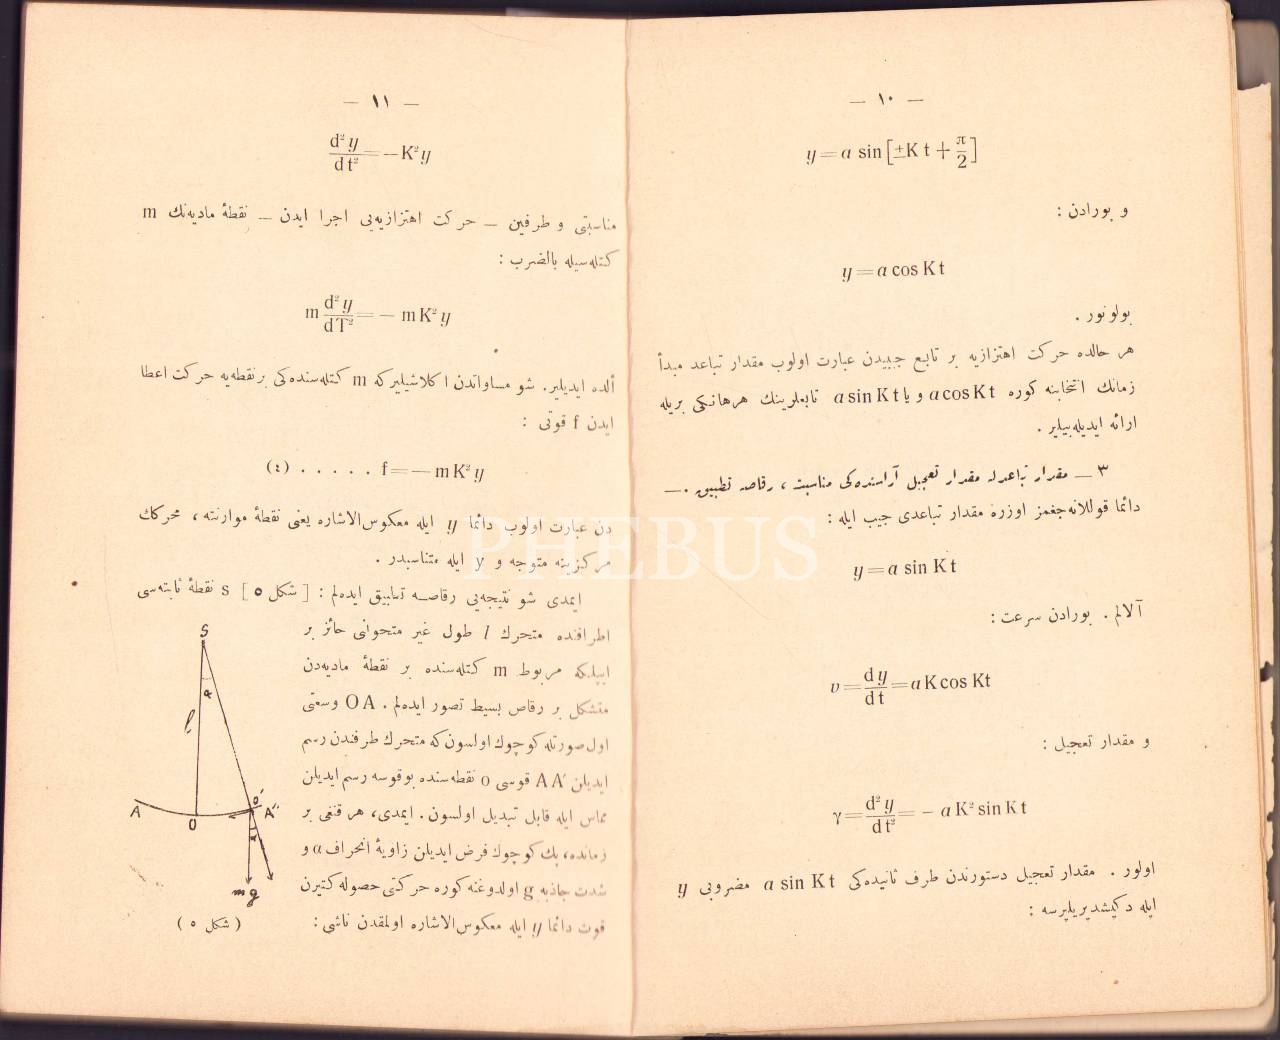 — ١٠ —
y = a sin [±K t + π/2]
و بورادن :
y = a cos K t
بولونور .
هر حالده حركت اهتزازيه بر تابع جيبيدن عبارت اولوب مقدار تباعد مبدأ
زمانك انتخابنه كوره a cos K t و يا a sin K t تابعلرينك هرهانكى بريله
ارائه ايديله‌بيلير .
٣ — مقدار تباعدله مقدار تعجيل آراسنده‌كى مناسبت ، رقاصه تطبيق . —
دائما قوللانه‌جغمز اوزره مقدار تباعدى جيب ايله :
y = a sin K t
آلالم . بورادن سرعت :
v = dy/dt = a K cos Kt
و مقدار تعجيل :
γ = d²y/dt² = − a K² sin K t
اولور . مقدار تعجيل دستورندن طرف ثانيده‌كى a sin K t مضروبى y
ايله دكيشديريليرسه :
— ١١ —
d²y/dt² = − K² y
مناسبتى و طرفين — حركت اهتزازيه‌يى اجرا ايدن — نقطهٔ ماديه‌نك m
كتله‌سيله بالضرب :
m d²y/dT² = − m K² y
ألده ايديلير. شو مساواتدن اكلاشيليركه m كتله‌سنده‌كى برنقطه‌يه حركت اعطا
ايدن f قوتى :
f = − m K² y . . . . . (٤)
دن عبارت اولوب دائما y ايله معكوس‌الاشاره يعنى نقطهٔ موازنته ، محركك
مركزينه متوجه و y ايله متناسبدر .
ايمدى شو نتيجه‌يى رقاصه تطبيق ايده‌لم : [ شكل ٥ ] s نقطهٔ ثابته‌سى
اطرافنده متحرك l طول غير متحوانى حائز بر
ايپلكه مربوط m كتله‌سنده بر نقطهٔ ماديه‌دن
متشكل بر رقاص بسيط تصور ايده‌لم . OA وسعتى
اول‌صورتله كوچوك اولسون كه متحرك طرفندن رسم
ايديلن AA′ قوسى o نقطه‌سنده بوقوسه رسم ايديلن
مماس ايله قابل تبديل اولسون . ايمدى، هر قنغى بر
زمانده، پك كوچوك فرض ايديلن زاويهٔ انحراف a و
شدت جاذبه g اولدوغنه كوره حركتى حصوله كتيرن
قوت دائما y ايله معكوس‌الاشاره اولمقدن ناشى :
S
α
l
A
O
O′
A″
α
mg
( شكل ٥ )
PHEBUS